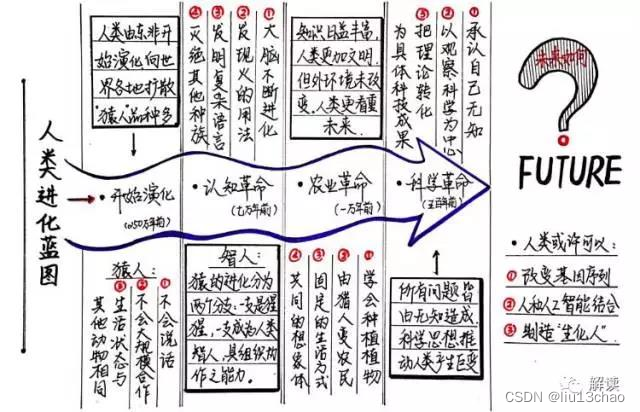 人类进化蓝图
人类由东非开
始演化向世
界各地扩散
猿人品种多
①大脑不断进化
②发现火的用法
③发明复杂语言
④灭绝其他种族
知识日益丰富,
人类更加文明,
但外环境未改
变,人类更看重
未来.
①承认自己无知
②以观察科学为中心
③把理论转化
为具体科技成果
未来如何
?
FUTURE
开始演化
(250万年前)
认知革命
(七万年前)
农业革命
(一万年前)
科学革命
(五百年前)
猿人:
①不会说话
②不会大规模合作
③生活状态与
其他动物相同
智人:
猿的进化分为
两个分支:一支是猩
猩,一支成为人类
智人,具组织协
作之能力。
①学会种植植物
②由猎人变农民
③固定的生活方式
④共同的想象体
所有问题皆
由无知造成,
科学思想推
动人类产生巨变
·人类或许可以:
①改变基因序列
②人和人工智能结合
③制造"生化人".
解读
CSDN @liu13chao